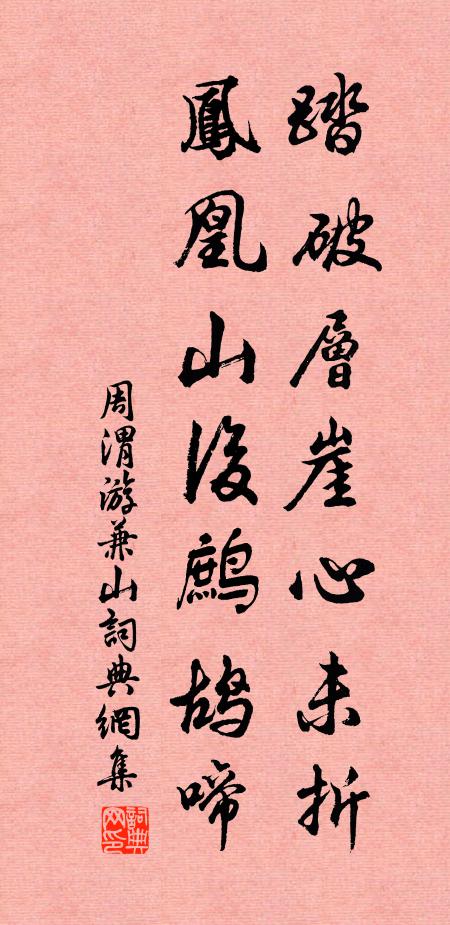 踏破層崖心未折
鳳凰山後鷓鴣啼
周渭游兼山詞典網集
詞典网印